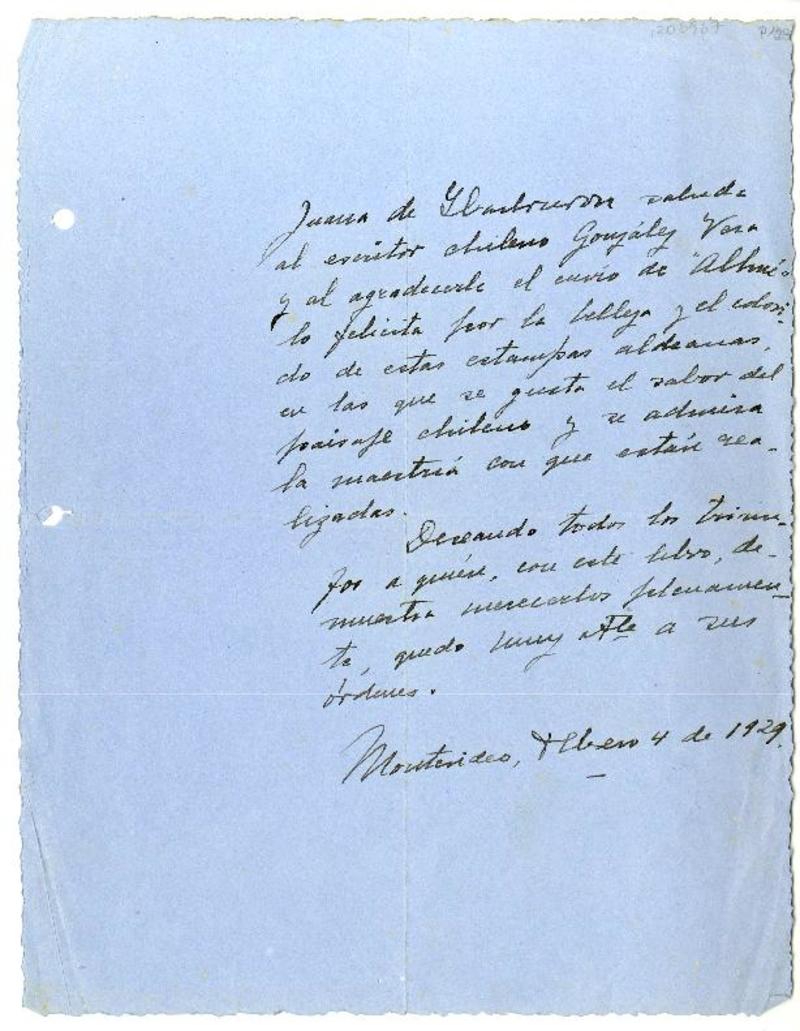 206967
Juana de Ybarbourou saluda
al escritor chileno González Vera
y al agradecerle el envío de "Alhué"
lo felicita por la belleza y el colori-
do de estas estampas aldeanas,
en las que se gusta el sabor del
paisaje chileno y se admira
la maestría con que están rea-
lizadas.
Deseando todos los triun-
fos a quién, con este libro, de-
muestra merecerlos plenamen-
te, queda muy Atte a sus
órdenes.
Montevideo, Febrero 4 de 1929.